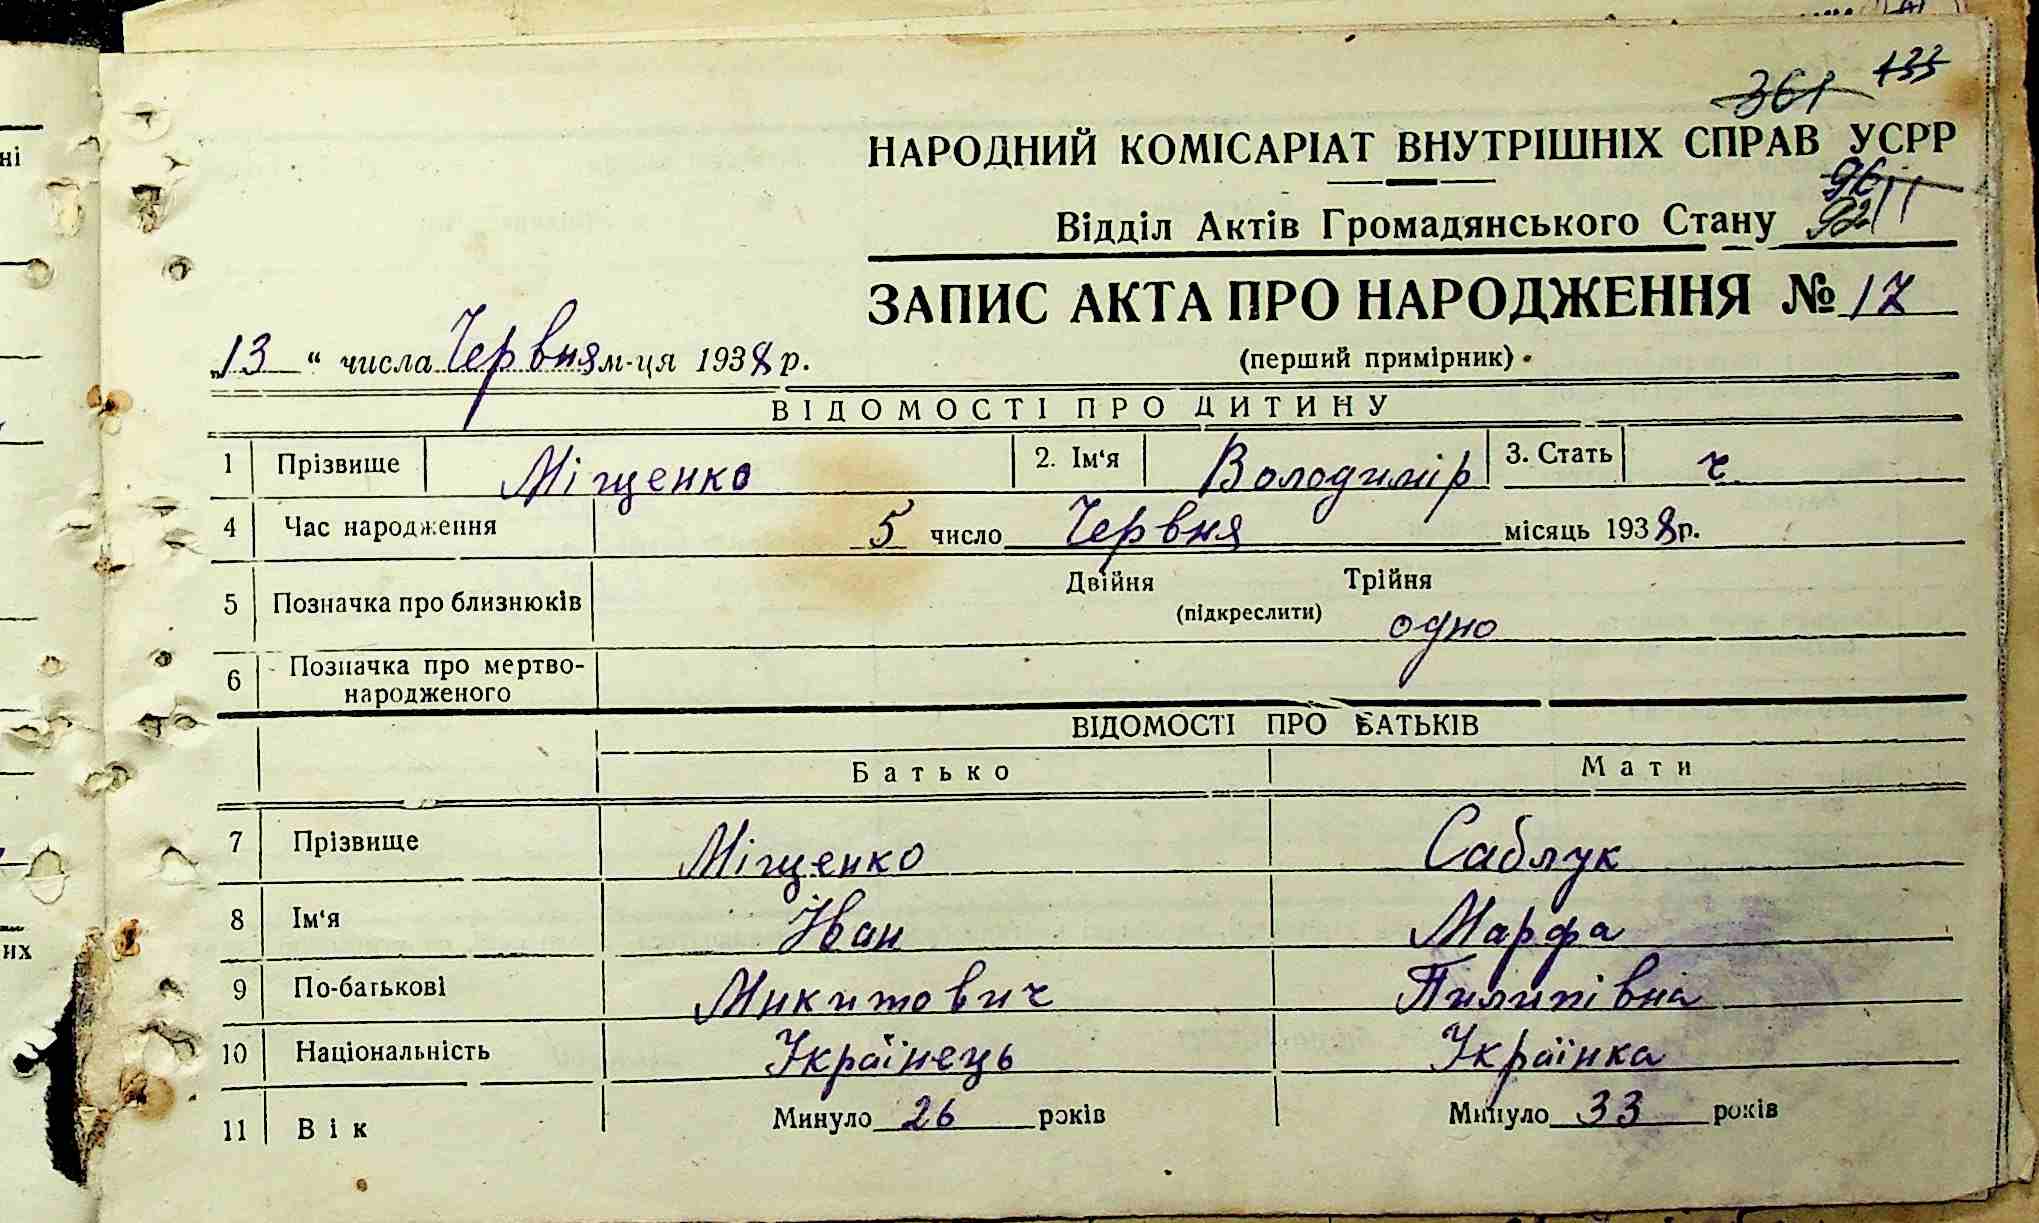 361 133
НАРОДНИЙ КОМІСАРІАТ ВНУТРІШНІХ СПРАВ УСРР
96
Відділ Актів Громадянського Стану 92
ЗАПИС АКТА ПРО НАРОДЖЕННЯ № 17
„13“ числа Червня м-ця 1938 р.
(перший примірник)
ВІДОМОСТІ ПРО ДИТИНУ
1 Прізвище Міщенко 2. Ім'я Володимір 3. Стать ч
4 Час народження 5 число Червня місяць 1938 р.
5 Позначка про близнюків Двійня Трійня
(підкреслити) одно
6 Позначка про мертво-
народженого
ВІДОМОСТІ ПРО БАТЬКІВ
Батько Мати
7 Прізвище Міщенко Саблук
8 Ім'я Іван Марфа
9 По-батькові Микитович Пилипівна
10 Національність Українець Українка
11 Вік Минуло 26 років Минуло 33 років
ні
их